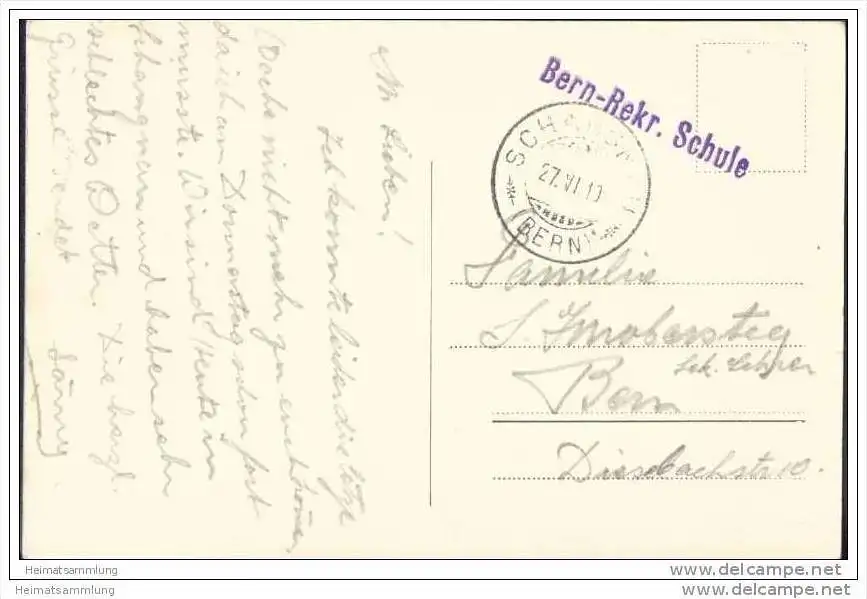 M. Lieben!
Ich konnte leider die letzte
Woche nicht mehr zu euch kommen,
da ich am Donnerstag schon fort
musste. Wir sind heute in
Schangnau und haben sehr
schlechtes Wetter. Die herzl.
Grüsse sendet
Bern-Rekr. Schule
SCHANGNAU
27.VI.
(BERN)
Familie
S. Imobersteg
Sek. Lehrer
Bern
Diesbachstr. 10.
Heimatsammlung
Heimatsammlung
delcampe.net
delcampe.net